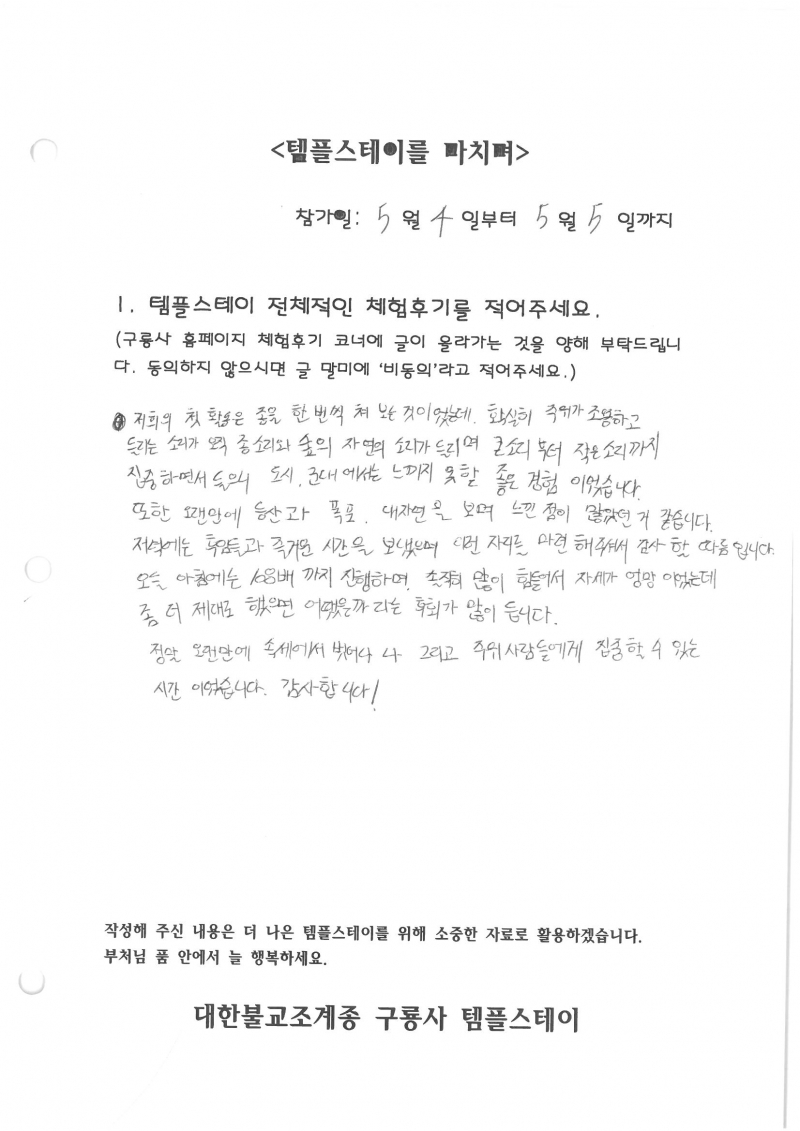 <템플스테이를 마치며>
참가일: 5 월 4 일부터 5 월 5 일까지
1. 템플스테이 전체적인 체험후기를 적어주세요.
(구룡사 홈페이지 체험후기 코너에 글이 올라가는 것을 양해 부탁드립니
다. 동의하지 않으시면 글 말미에 '비동의'라고 적어주세요.)
저희의 첫 활동은 종을 한 번씩 쳐 보는 것이었는데. 확실히 주위가 조용하고
들리는 소리가 오직 종소리와 숲의 자연의 소리가 들리며 큰소리 부터 작은소리까지
집중하면서 들으니 도시, 군대에서는 느끼지 못할 좋은 경험 이었습니다.
또한 오랜만에 등산과 폭포, 대자연을 보며 느낀 점이 많았던 거 같습니다.
저녁에는 후임들과 즐거운 시간을 보냈으며 이런 자리를 마련 해주셔서 감사 할 따름입니다.
오늘 아침에는 108배 까지 진행하며, 솔직히 많이 힘들어서 자세가 엉망 이었는데
좀 더 제대로 했으면 어땠을까 라는 후회가 많이 듭니다.
정말 오랜만에 속세에서 벗어나 나 그리고 주위사람들에게 집중할 수 있는
시간 이었습니다. 감사합니다!
작성해 주신 내용은 더 나은 템플스테이를 위해 소중한 자료로 활용하겠습니다.
부처님 품 안에서 늘 행복하세요.
대한불교조계종 구룡사 템플스테이